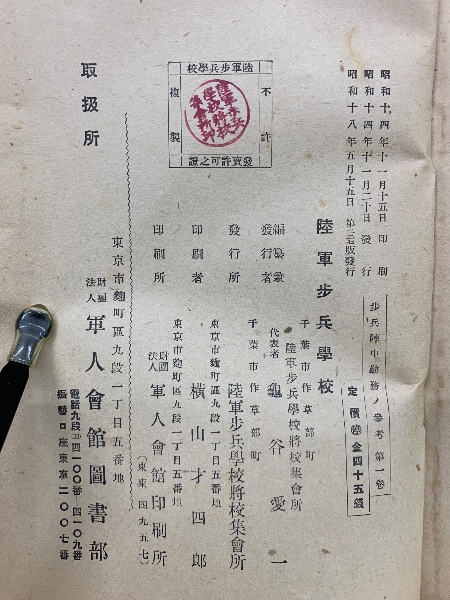 昭和十四年十一月十五日印刷
昭和十四年十一月二十日發行
昭和十八年五月十五日第三七版發行
步兵陣中勤務ノ參考 第一卷
定價金四十五錢
陸軍步兵學校
不許
複製
發賣許可之證
陸軍步兵學校將校集會所印
陸軍步兵學校
千葉市作草部町
編纂兼發行者
陸軍步兵學校將校集會所
代表者 龜谷愛一
千葉市作草部町
發行所 陸軍步兵學校將校集會所
東京市麴町區九段一丁目五番地
印刷者 橫山才四郎
東京市麴町區九段一丁目五番地
印刷所 財團法人 軍人會館印刷所
(東東四九五七)
東京市麴町區九段一丁目五番地
取扱所 財團法人 軍人會館圖書部
電話九段(33)四一〇〇番 四一〇九番
振替口座東京二〇〇七番